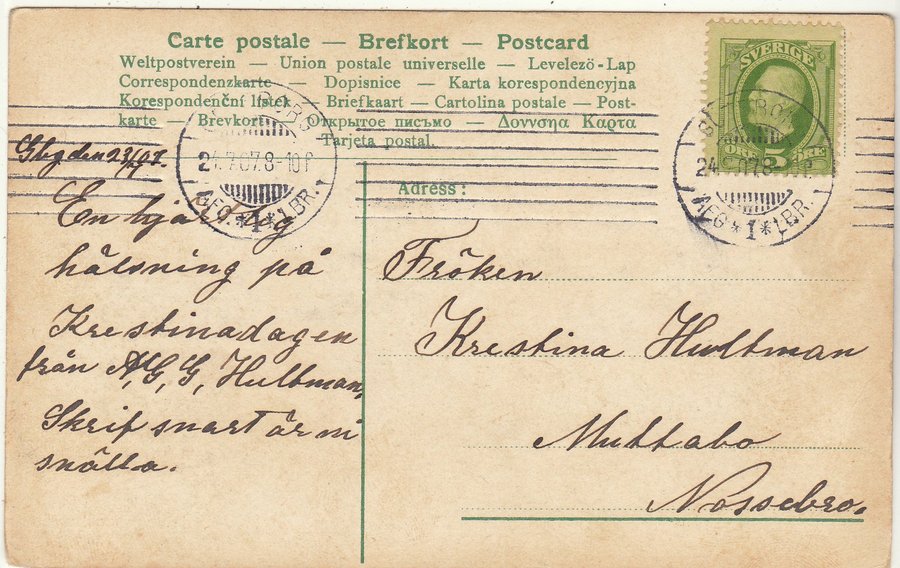 Carte postale — Brefkort — Postcard
Weltpostverein — Union postale universelle — Levelezö-Lap
Correspondenzkarte — Dopisnice — Karta korespondencyjna
Korespondenční lístek — Briefkaart — Cartolina postale — Post-
karte — Brevkort — Открытое письмо — Δοννσηα Καρτα
Tarjeta postal.
SVERIGE
5
24.7.07.8-10F
AFG*1*LBR.
24 07.8
AFG*1*LBR.
Gbg den 23/7 07.
En hjärtlig
hälsning på
Krestinadagen
från A, G, G, Hultman,
Skrif snart är ni
snälla.
Adress:
Fröken
Krestina Hultman
Muttabo
Nossebro.